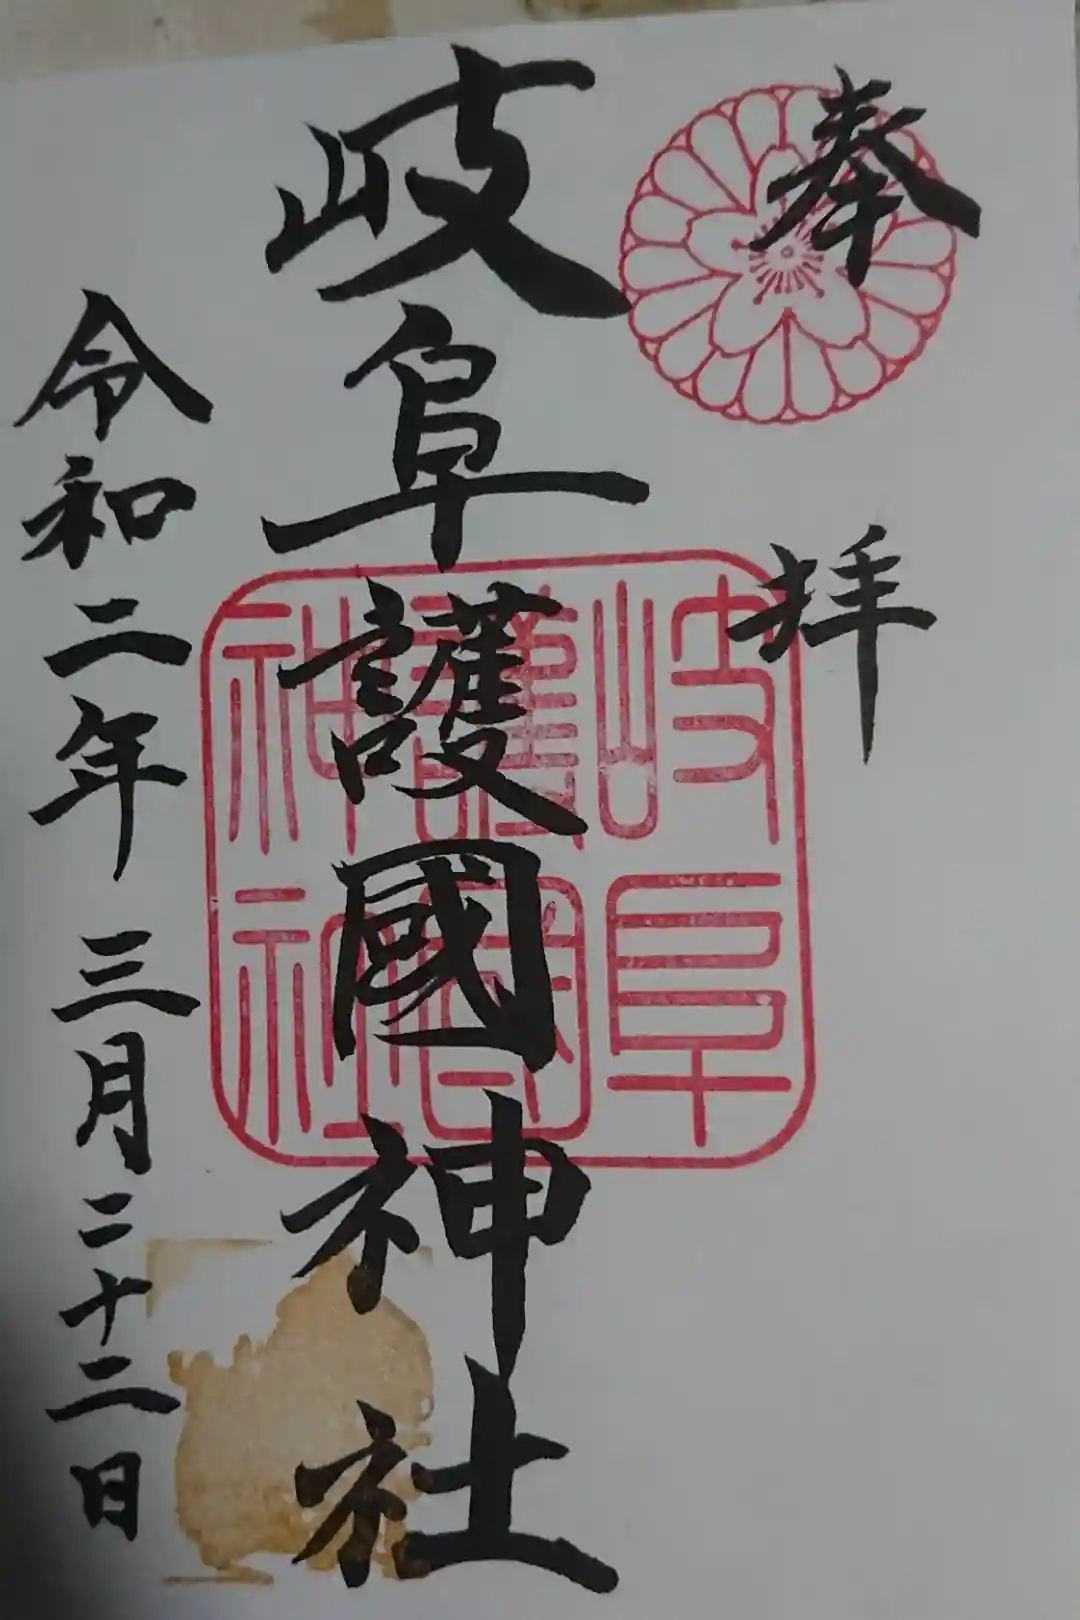 奉拝
岐阜護國神社
岐阜
護國
神社
令和二年三月二十二日